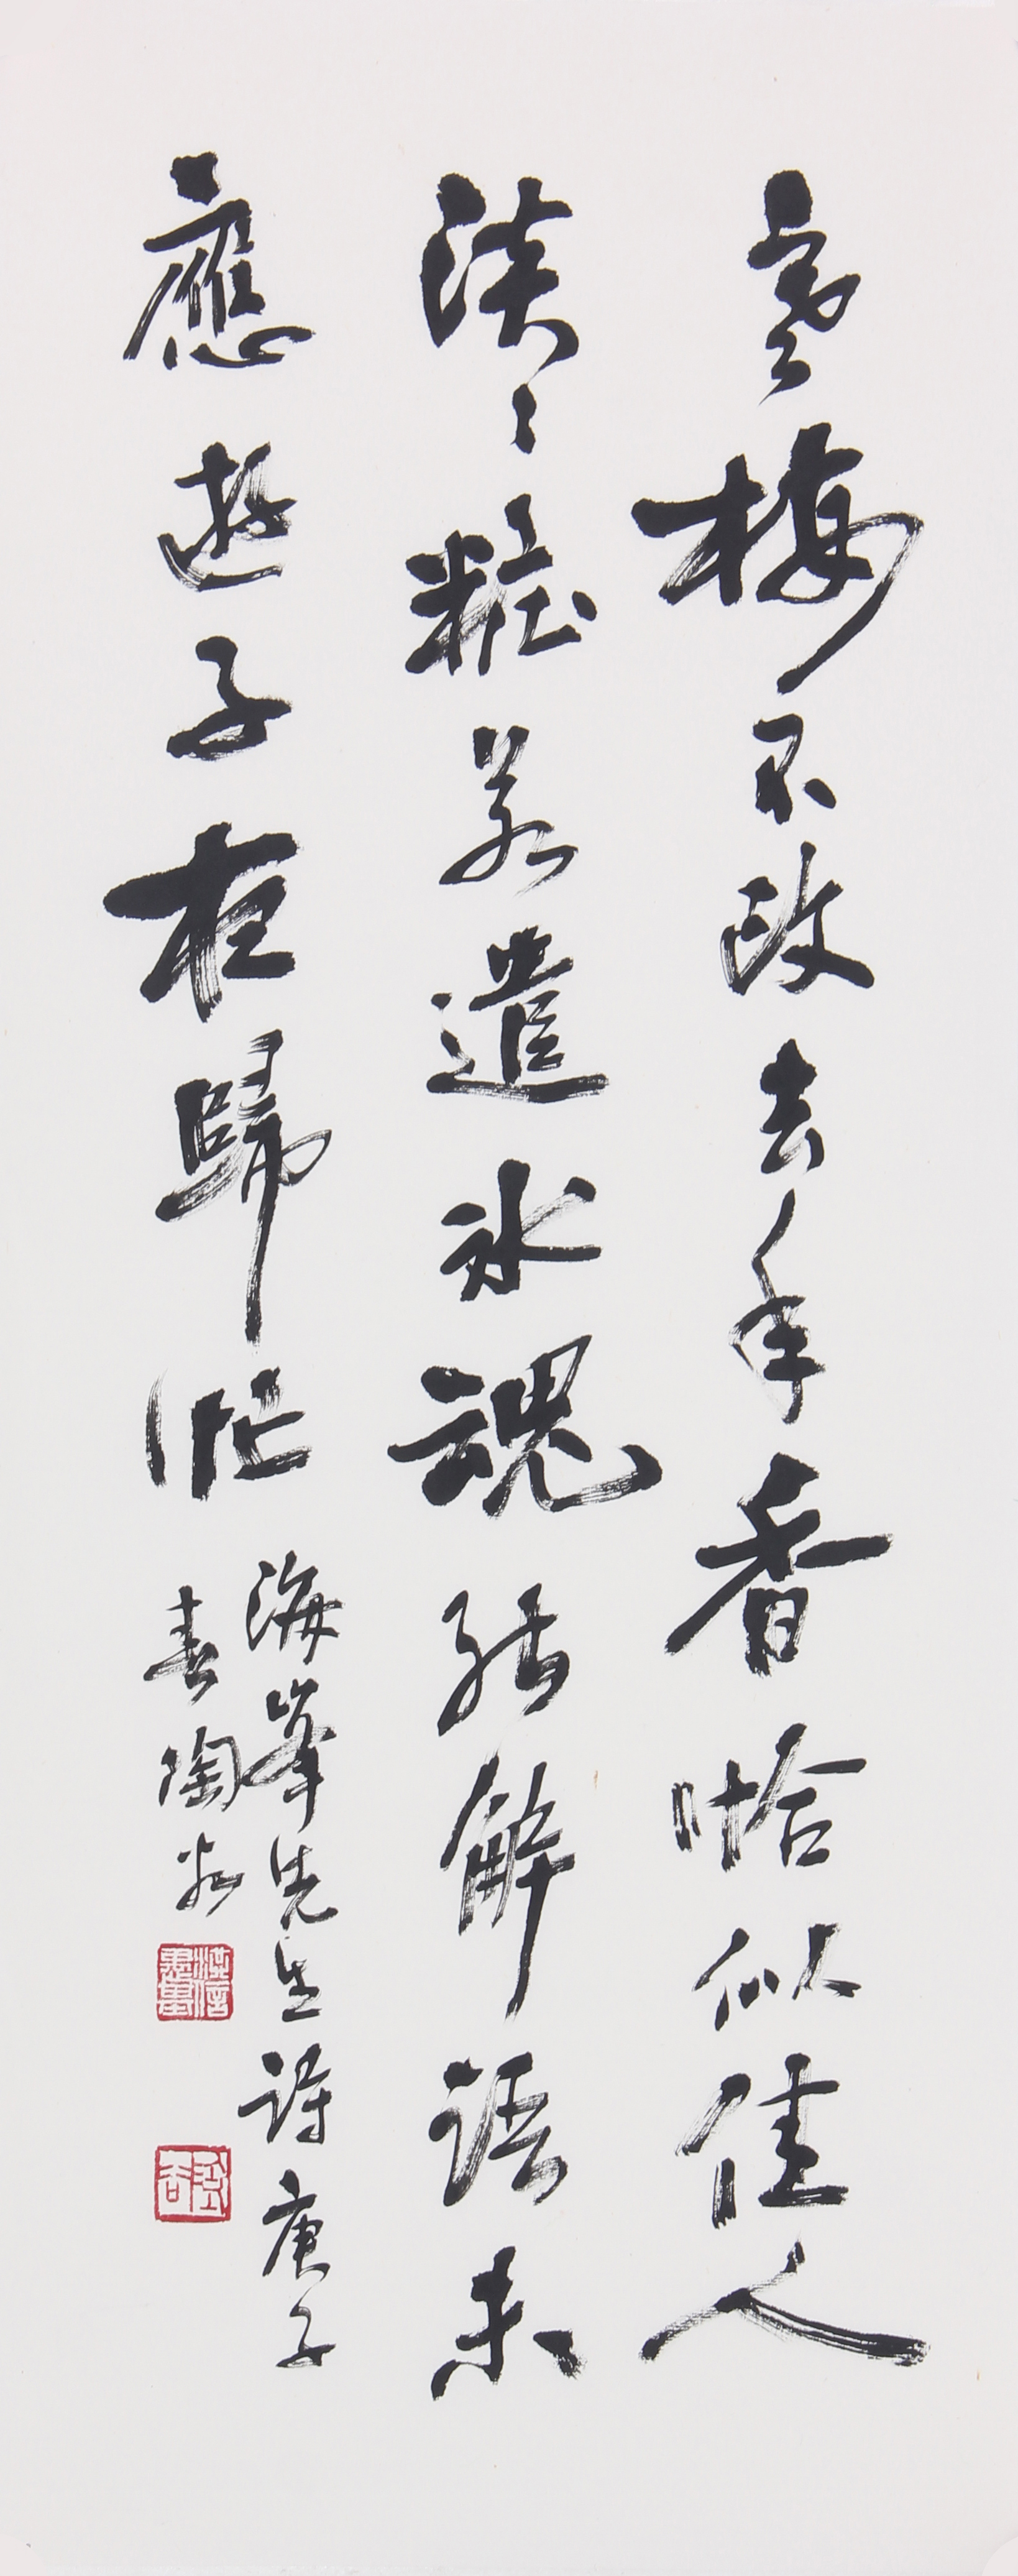 寒梅不改去年香恰似佳人
淡〻粧若遣冰魂能解語未
應遊子在歸忙
海峯先生詩庚子
春陶